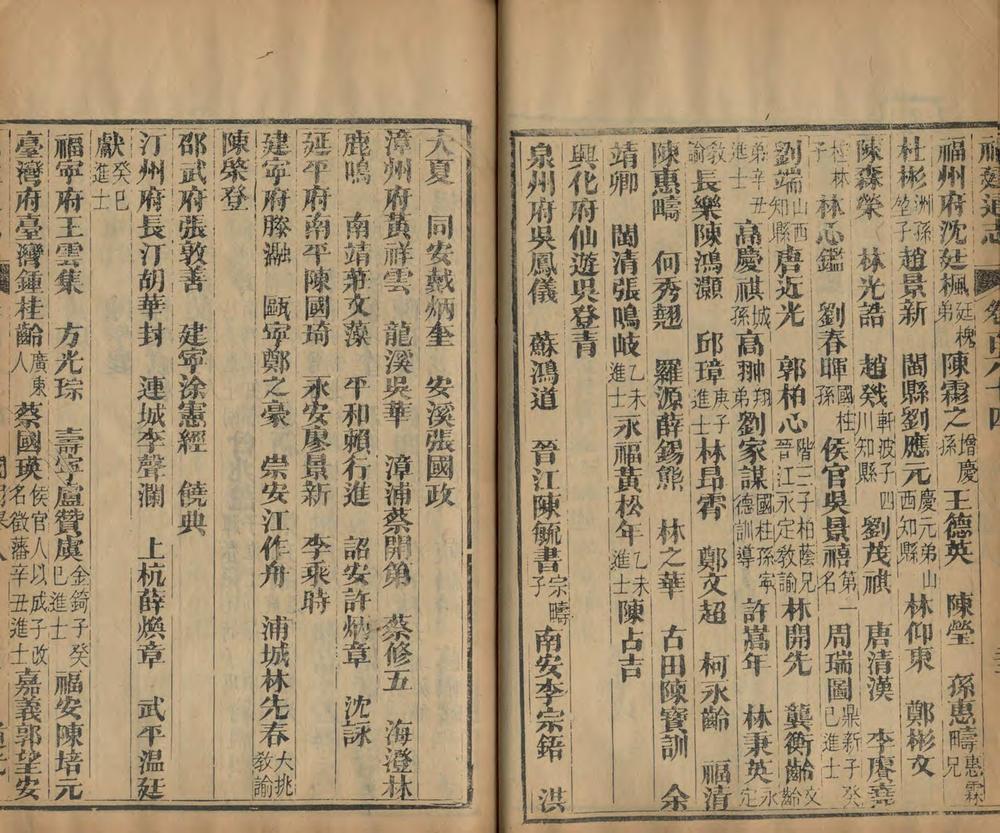 福建通志 卷一百六十四
福州府沈廷楓廷槐弟 陳霦之增慶孫 王德英 陳瑩 孫惠疇惠霖兄
杜彬洲孫堃子 趙景新 閩縣劉應元慶元弟山西知縣 林仰東 鄭彬文
陳森榮 林光誥 趙 軒波子四川知縣 劉茂祺 唐清漢 李慶堯
桂林子 林心鑑 劉春暉國柱孫 侯官吳景禧第一名 周瑞圖鼎新子癸巳進士
劉端山西知縣 唐近光 郭柏心階三子柏蔭兄晉江永定教諭 林開先 龔衡齡文齡
弟辛丑進士 高慶祺城孫 高翀翔弟 劉家謀國柱孫寧德訓導 許嵩年 林秉英永定
教諭 長樂陳鴻灝 邱璋庚子進士 林昂霄 鄭文超 柯永齡 福清
陳惠疇 何秀翹 羅源薛錫熊 林之華 古田陳寶訓 余
靖卿 閩清張鳴岐乙未進士 永福黃松年乙未進士 陳占吉
興化府仙遊吳登青
泉州府吳鳳儀 蘇鴻道 晉江陳毓書宗疇子 南安李宗鍇 洪
大夏 同安戴炳奎 安溪張國政
漳州府黃祥雲 龍溪吳華 漳浦蔡開第 蔡修五 海澄林
鹿鳴 南靖莊文藻 平和賴行進 詔安許炳章 沈詠
延平府南平陳國琦 永安廖景新 李乘時
建寧府滕瀜 甌寧鄭之豪 崇安江作舟 浦城林先春大挑教諭
陳榮登
邵武府張敦善 建寧徐憲經 饒典
汀州府長汀胡華封 連城李聲瀾 上杭薛煥章 武平溫廷
獻癸巳進士
福寧府王雲集 方光琮 壽寧盧贊虞金錡子癸巳進士 福安陳培元
臺灣府臺灣鍾桂齡廣東人 蔡國瑛侯官人以成子改名徵藩辛丑進士 嘉義郭望安